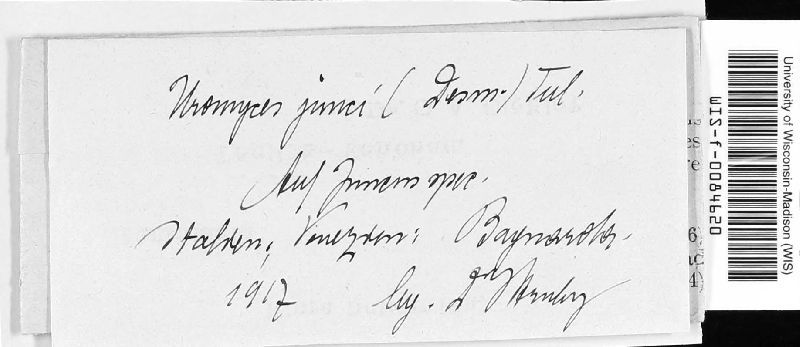 Uromyces junci (Desm.) Tul.
Auf Juncus spec.
Italien, Venezien: Bagnarola.
1917 leg. Dr
WIS-f-0084620
University of Wisconsin-Madison (WIS)